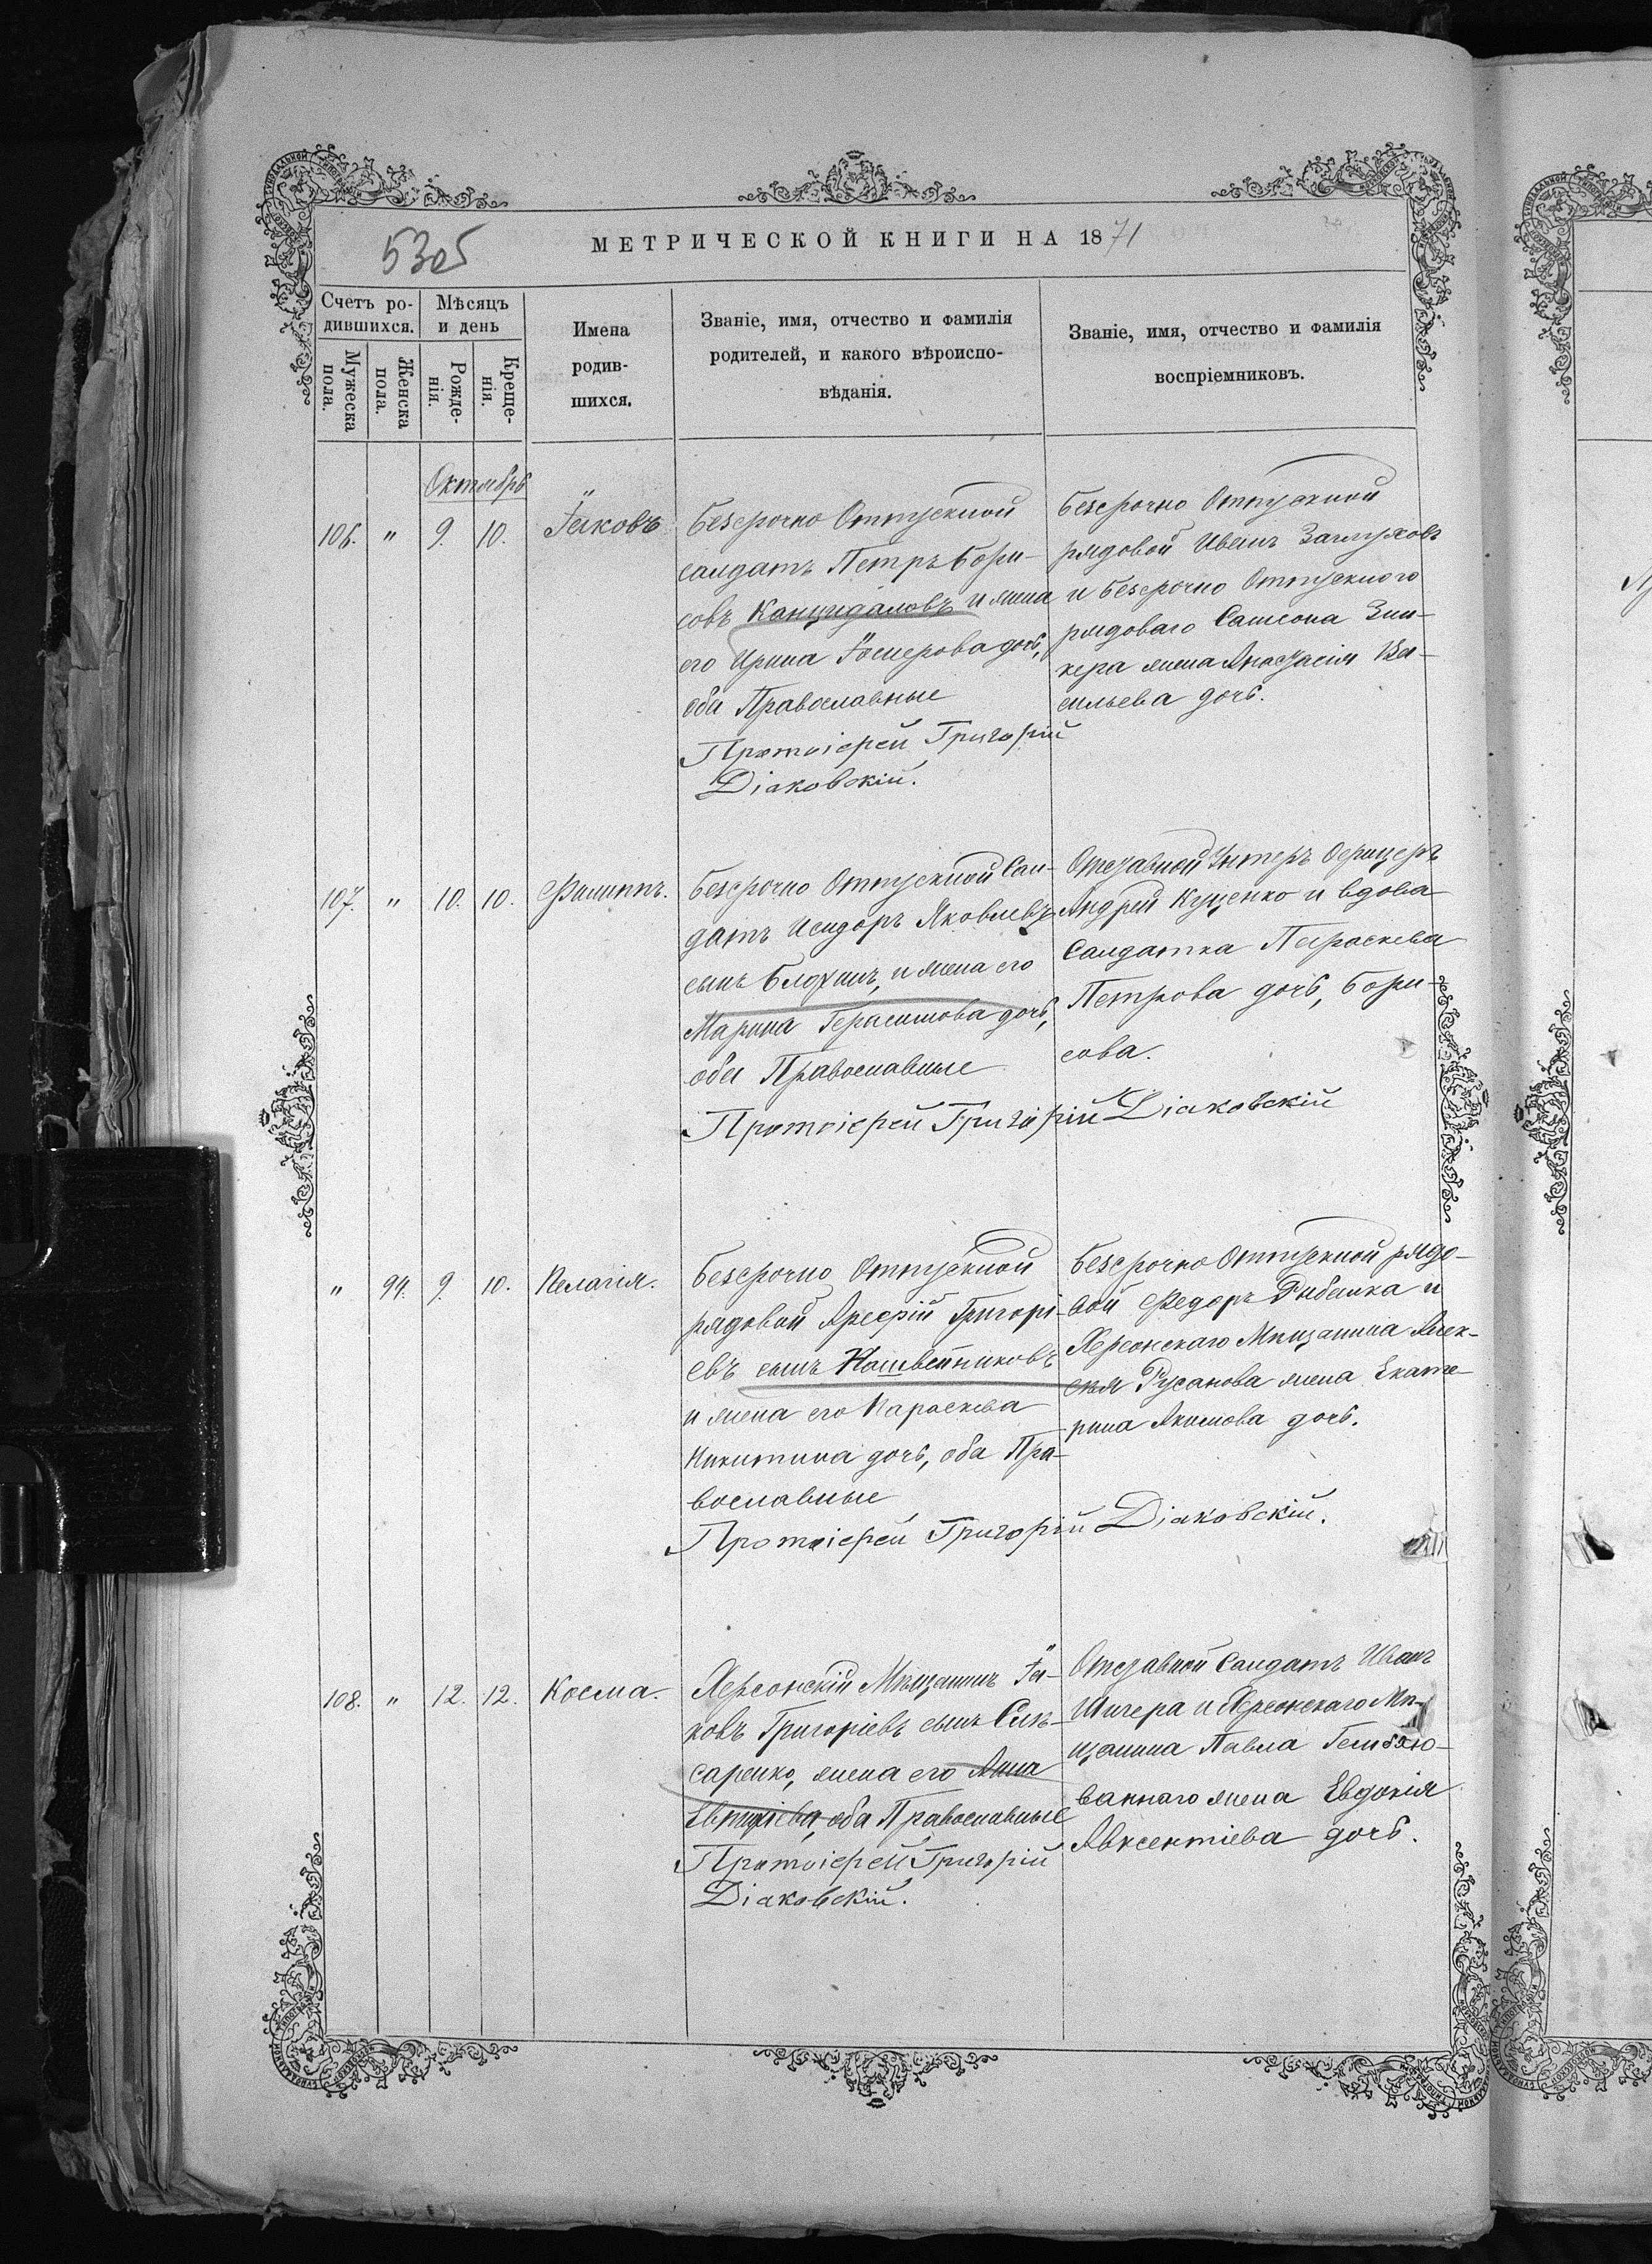 530б
МЕТРИЧЕСКОЙ КНИГИ НА 1871
Счетъ ро-
дившихся.
Мѣсяцъ
и день
Мужеска
пола.
Женска
пола.
Рожде-
нія.
Креще-
нія.
Имена
родив-
шихся.
Званіе, имя, отчество и фамилія
родителей, и какого вѣроиспо-
вѣданія.
Званіе, имя, отчество и фамилія
воспріемниковъ.
Октябрь
106. " 9. 10. Іаковъ
Безсрочно Отпускной
салдатъ Петръ Бори-
совъ Канцидаловъ и жена
его Ирина Іосифова дочь,
оба Православные
Протоіерей Григорій
Діаковскій.
Безсрочно Отпускной
рядовой Иванъ
и Безсрочно Отпускного
рядоваго Самсона Зин-
кера жена Анастасія Ва-
сильева дочь.
107. " 10. 10. Филиппъ.
Безсрочно Отпускной Сал-
датъ Исидоръ Яковлевъ
сынъ Блохинъ, и жена его
Марина Герасимова дочь,
оба Православные
Протоіерей Григорій Діаковскій
Отставной Унтеръ Офицеръ
Андрей Куценко и вдова
Салдатка Параскева
Петрова дочь, Бори-
сова.
" 94. 9. 10. Пелагія.
Безсрочно Отпускной
рядовой Арефій Григорі-
евъ сынъ
и жена его Параскева
Никитина дочь, оба Пра-
вославные
Протоіерей Григорій Діаковскій.
Безсрочно Отпускной рядо-
вой Федоръ Рыбалка и
Херсонскаго Мѣщанина Алек-
сѣя Русанова жена Екате-
рина Якимова дочь.
108. " 12. 12. Косма.
Херсонскій Мѣщанинъ Іа-
ковъ Григоріевъ сынъ Слѣ-
саренко, жена его Анна
оба Православные
Протоіерей Григорій
Діаковскій.
Отставной Салдатъ Иванъ
Шигера и Херсонскаго Мѣ-
щанина Павла
ваннаго жена Евдокія
Авксентіева дочь.